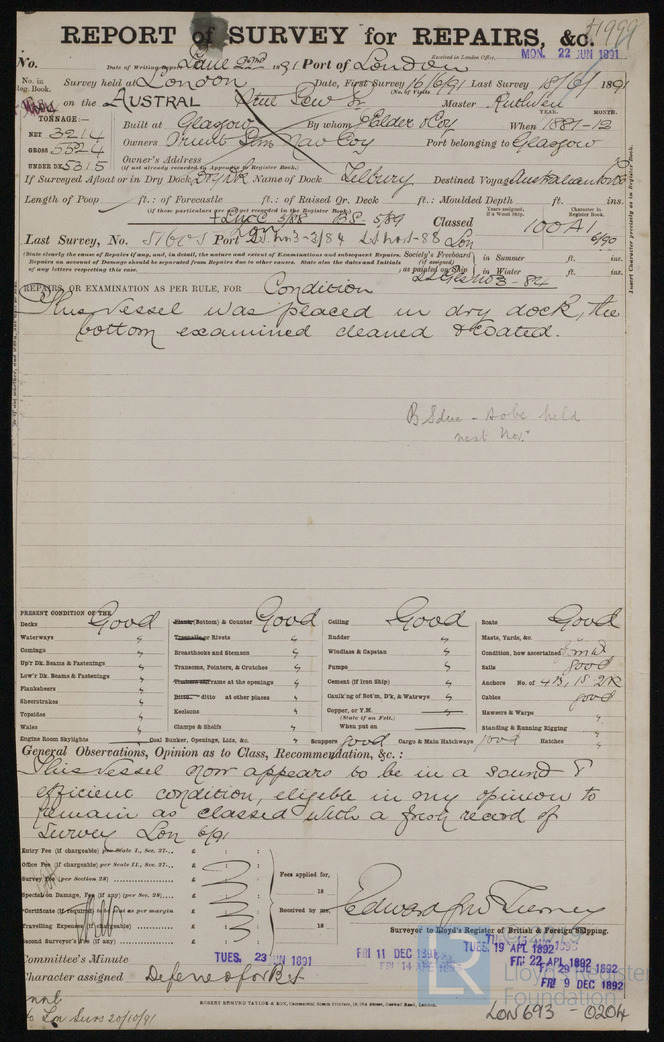 REPORT of SURVEY for REPAIRS, &c.
No. Date of Writing Report June 22nd 1891 Port of London Received in London Office, MON. 22 JUN 1891
No. in Reg. Book. Survey held at London Date, First Survey 16/6/91 Last Survey 18/6/1891
(No. of Visits )
on the AUSTRAL Master Ruthven
TONNAGE:— YEAR. MONTH.
NET 3214 Built at Glasgow By whom J Elder & Coy When 1881-12
GROSS 5524 Owners Orient Stm Nav Coy Port belonging to Glasgow
UNDER DK 5315 Owner's Address
(if not already recorded in Appendix to Register Book.)
If Surveyed Afloat or in Dry Dock Dry Dk Name of Dock Tilbury Destined Voyage Australian
Length of Poop ft.: of Forecastle ft.: of Raised Qr. Deck ft.: Moulded Depth ft. ins.
(if these particulars are not yet recorded in the Register Book.)
+LMC 5/88 BS 5/89 Classed 100A1 6/90
Years assigned, if a Wood Ship. Character in Register Book.
Last Survey, No. 51605 Port Lon
(State clearly the cause of Repairs if any, and, in detail, the nature and extent of Examinations and subsequent Repairs.
Repairs on account of Damage should be separated from Repairs due to other causes. State also the dates and Initials
of any letters respecting this case.
Society's Freeboard (if assigned) as painted on Ship in Summer ft. ins.
in Winter ft. ins.
Insert Character precisely as in Register Book.
REPAIRS, OR EXAMINATION AS PER RULE, FOR Condition
This Vessel was placed in dry dock, the
bottom examined cleaned & coated.
BS due - to be held
next Nov.
PRESENT CONDITION OF THE
Decks Good
Waterways "
Comings "
Up'r Dk. Beams & Fastenings "
Low'r Dk. Beams & Fastenings "
Planksheers "
Sheerstrakes "
Topsides "
Wales "
Engine Room Skylights "
Plank (Bottom) & Counter Good
Treenails or Rivets "
Breasthooks and Stemson "
Transoms, Pointers, & Crutches "
Timbers or Frame at the openings "
Ditto ditto at other places "
Keelsons "
Clamps & Shelfs "
Coal Bunker, Openings, Lids, &c. "
Ceiling Good
Rudder "
Windlass & Capstan "
Pumps "
Cement (if Iron Ship) "
Caulk'ng of Bot'm, D'k, & Waterwys "
Copper, or Y.M.
(State if on Felt.)
When put on
Scuppers good Cargo & Main Hatchways good
Boats Good
Masts, Yards, &c. "
Condition, how ascertained
Sails good
Anchors No. of 4B, 1S 2K
Cables good
Hawsers & Warps "
Standing & Running Rigging "
Hatches "
General Observations, Opinion as to Class, Recommendation, &c.:
This Vessel now appears to be in a sound &
efficient condition, eligible in my opinion to
remain as classed with a fresh record of
Survey Lon 6/91
Entry Fee (if chargeable) per Scale I., Sec. 27... £ : :
Office Fee (if chargeable) per Scale II., Sec. 27... £
Survey Fee (per Section 28) £
Special or Damage, Fee (if any) (per Sec. 28) £
Certificate (if required) to be sent as per margin £
Travelling Expenses (if chargeable) £
Second Surveyor's Fee (if any) £
Fees applied for, 18
Received by me, 18
Edward W Tierney
Surveyor to Lloyd's Register of British & Foreign Shipping.
Committee's Minute TUES. 23 JUN 1891 FRI 11 DEC 1891 TUES. 19 APL 1892
FRI 22 APL 1892
FRI 9 DEC 1892
Character assigned Deferred for BS
ROBERT EDMUND TAYLOR & SON
LR Lloyd's Register Foundation
LON693 - 0204
20/10/91